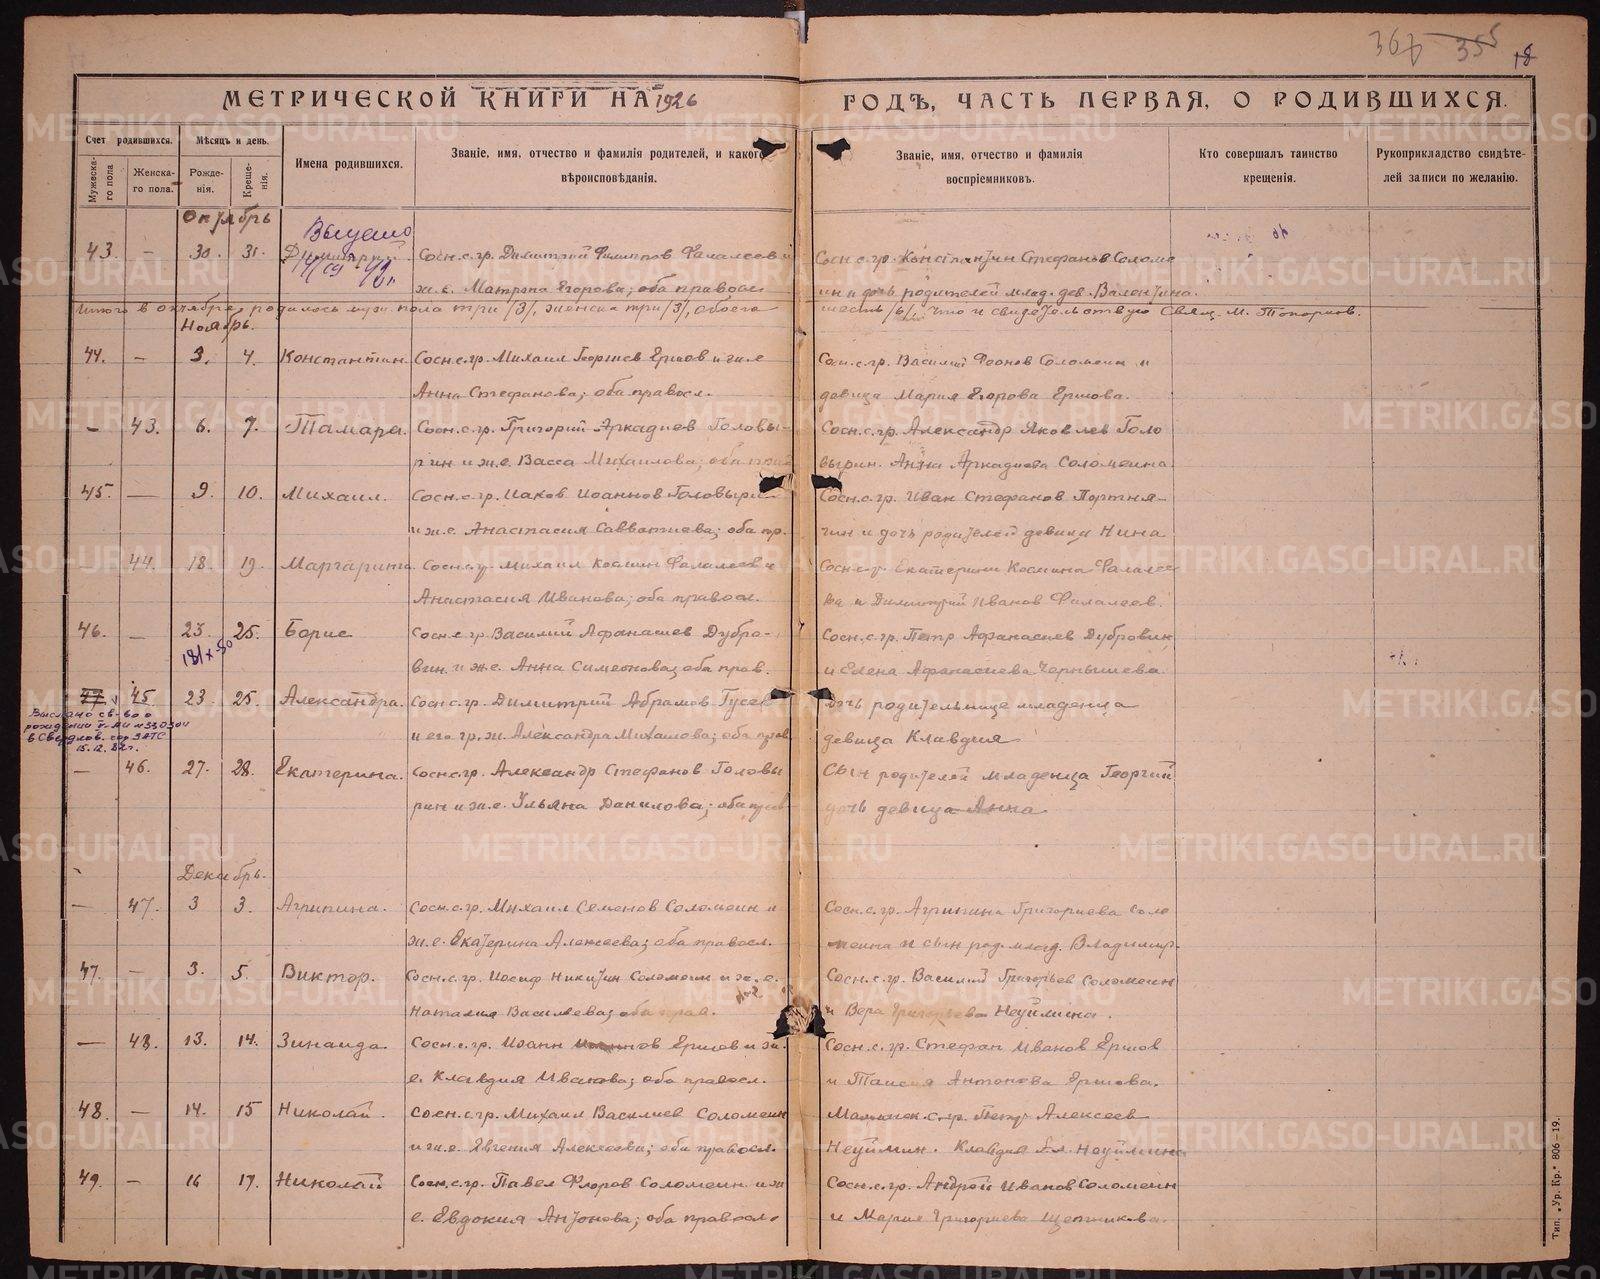 367 355 18
МЕТРИЧЕСКОЙ КНИГИ НА 1926 ГОДЪ, ЧАСТЬ ПЕРВАЯ, О РОДИВШИХСЯ.
Счет родившихся. Мѣсяцъ и день. Имена родившихся. Званіе, имя, отчество и фамилія родителей, и какого вѣроисповѣданія. Званіе, имя, отчество и фамилія воспріемниковъ. Кто совершалъ таинство крещенія. Рукоприкладство свидѣтелей записи по желанію.
Мужескаго пола Женскаго пола. Рожденія. Крещенія.
Октябрь
43. — 30. 31. Димитрий Сосн.с.гр. Димитрий Филиппов Фалалеев и Сосн.с.гр. Константин Стефанов Соломе
ж.е. Матрона Егорова; оба правосл. ин и дочь родителей млад. дев. Валентина.
Итого в октябре родилось муж. пола три /3/, женска три /3/, обоего шесть /6/, что и свидетельствую Свящ. М. Топорков.
Ноябрь.
44. — 3. 4. Константин Сосн.с.гр. Михаил Георгиев Ершов и ж.е Сосн.с.гр. Василий Феонов Соломеин и
Анна Стефанова; оба правосл. девица Мария Егорова Ершова.
— 43. 6. 7. Тамара. Сосн.с.гр. Григорий Аркадиев Головы- Сосн.с.гр. Александр Яковлев Голо
рин и ж.е. Васса Михаилова; оба прав вырин. Анна Аркадиева Соломеина
45. — 9. 10. Михаил. Сосн.с.гр. Иаков Иоаннов Головырин Сосн.с.гр. Иван Стефанов Портня-
и ж.е. Анастасия Савватиева; оба пр. гин и дочь родителей девица Нина
— 44. 18. 19. Маргарита. Сосн.с.гр. Михаил Косьмин Фалалеев и Сосн.с.гр. Екатерина Косьмина Фалалее
Анастасия Иванова; оба правосл. ва и Димитрий Иванов Фалалеев.
46. — 23. 25. Борис Сосн.с.гр. Василий Афанасиев Дубро- Сосн.с.гр. Петр Афанасиев Дубровин
18/X-50
вин и ж.е. Анна Симеонова; оба прав. и Елена Афанасиева Чернышева
47 45. 23 25. Александра. Сосн.с.гр. Димитрий Абрамов Гусев Дочь родительнице младенца
Выслано св-во о
рождении
в Свердлов. гор ЗАГС
15.12.82г.
и его гр.ж. Александра Михаилова; оба прав девица Клавдия
— 46. 27. 28. Екатерина. Сосн.с.гр. Александр Стефанов Головы Сын родителей младенца Георгий
рин и ж.е. Ульяна Данилова; оба прав дочь девица Анна
Декабрь.
— 47. 3 3. Агрипина. Сосн.с.гр. Михаил Семенов Соломеин и Сосн.с.гр. Агрипина Григориева Соло
ж.е. Екатерина Алексеева; оба правосл. меина и сын род. млад. Владимир.
47. — 3. 5. Виктор. Сосн.с.гр. Иосиф Никитин Соломеин и ж.е. Сосн.с.гр. Василий Григорьев Соломеин
Наталия Василиева; оба прав. и Вера Григорьева Неуймина.
— 48. 13. 14. Зинаида. Сосн.с.гр. Иоанн Ершов и ж. Сосн.с.гр. Стефан Иванов Ершов
е. Клавдия Иванова; оба правосл. и Таисия Антонова Ершова.
48. — 14. 15 Николай. Сосн.с.гр. Михаил Василиев Соломеин с.гр. Петр Алексеев
и ж.е. Евгения Алексеева; оба правосл. Неуймин. Клавдия Ал. Неуймина
49. — 16 17. Николай Сосн.с.гр. Павел Флоров Соломеин и ж Сосн.с.гр. Андрей Иванов Соломеин
е. Евдокия Антонова; оба правосл. и Мария Григориева Щепникова.
Тип. „Ур. Кр.“ 806—19.
METRIKI.GASO-URAL.RU